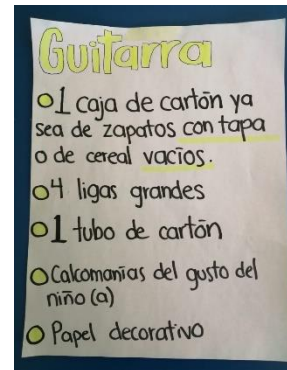 Guitarra
1 caja de cartón ya
sea de zapatos con tapa
o de cereal vacíos.
4 ligas grandes
1 tubo de cartón
Calcomanías del gusto del
niño (a)
Papel decorativo